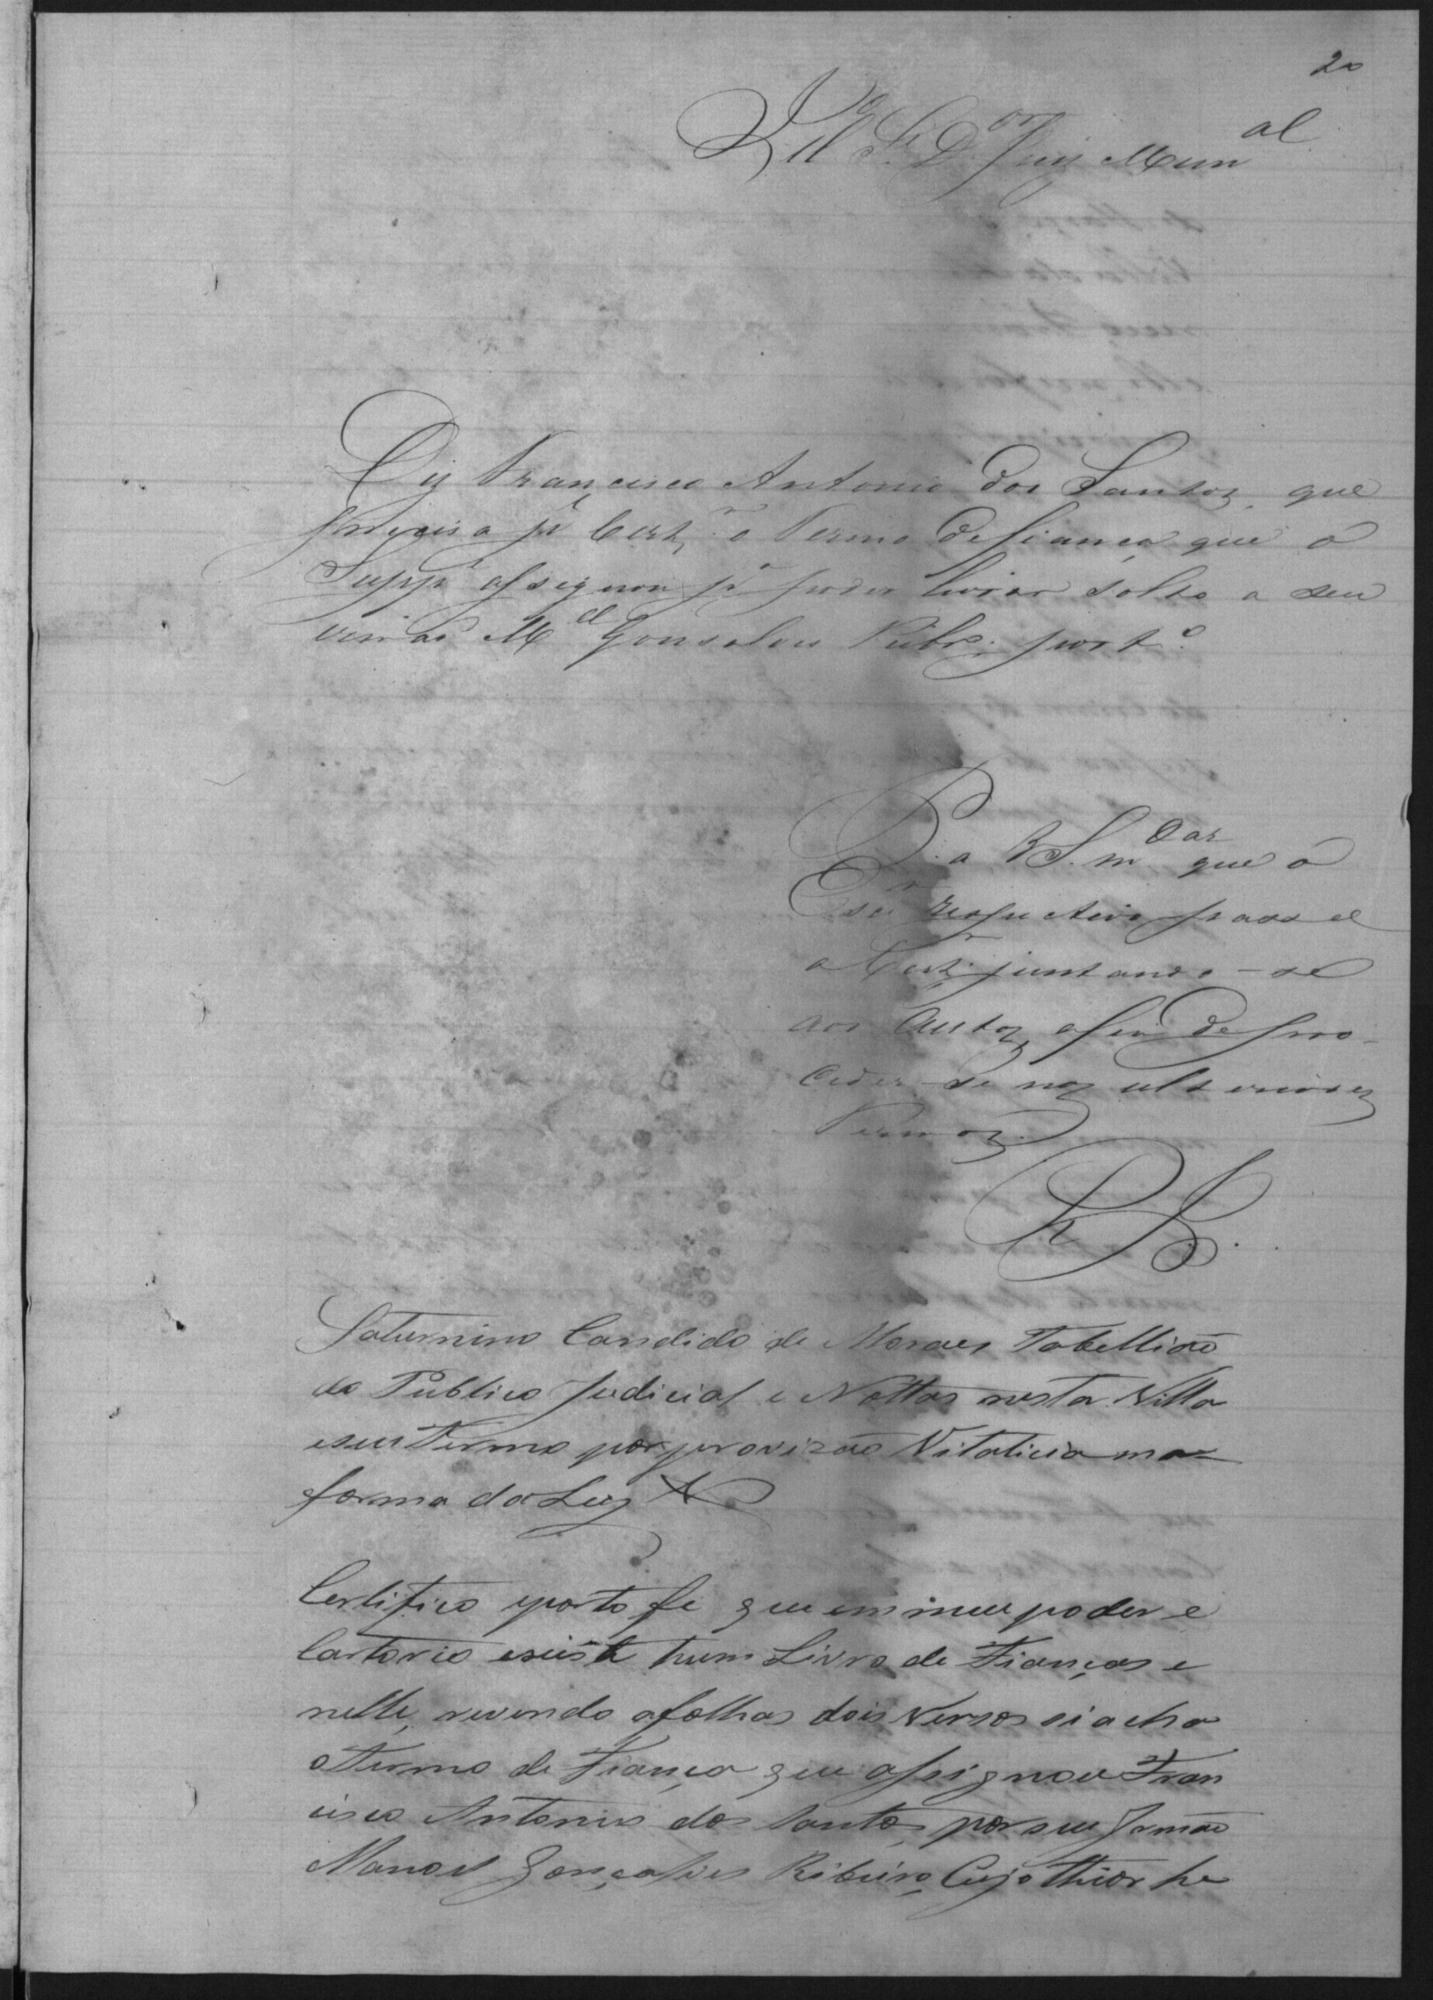 20
Illo Sr. Dor Juiz Munal
Diz Francisco Antonio dos Santos, que
precisa pr Certm o Termo de fiança que o
Suppe assignou pa poder livrar solto a seu
irmão Mel Gonsalves Ribro; port.o
P. a V S. mdar que o
Esm respectivo passe
a Certm juntando-se
aos Autos, afim de pro-
ceder-se nos ulteriores
Termos.
Saturnino Candido de Moraes Tabellião
do Publico Judicial e Nottas nesta Villa
eseu Termo por provizão Vitalicia na
forma da Ley
Certifico eporto fé que em meu poder e
Cartorio existe hum Livro de Fianças e
nelle, revendo afolhas dois versos si acha
o Termo de Fiança que assignou Fran
cisco Antonio dos Santos, por seu Jrmão
Manoel Gonçalves Ribeiro, Cujo thior he